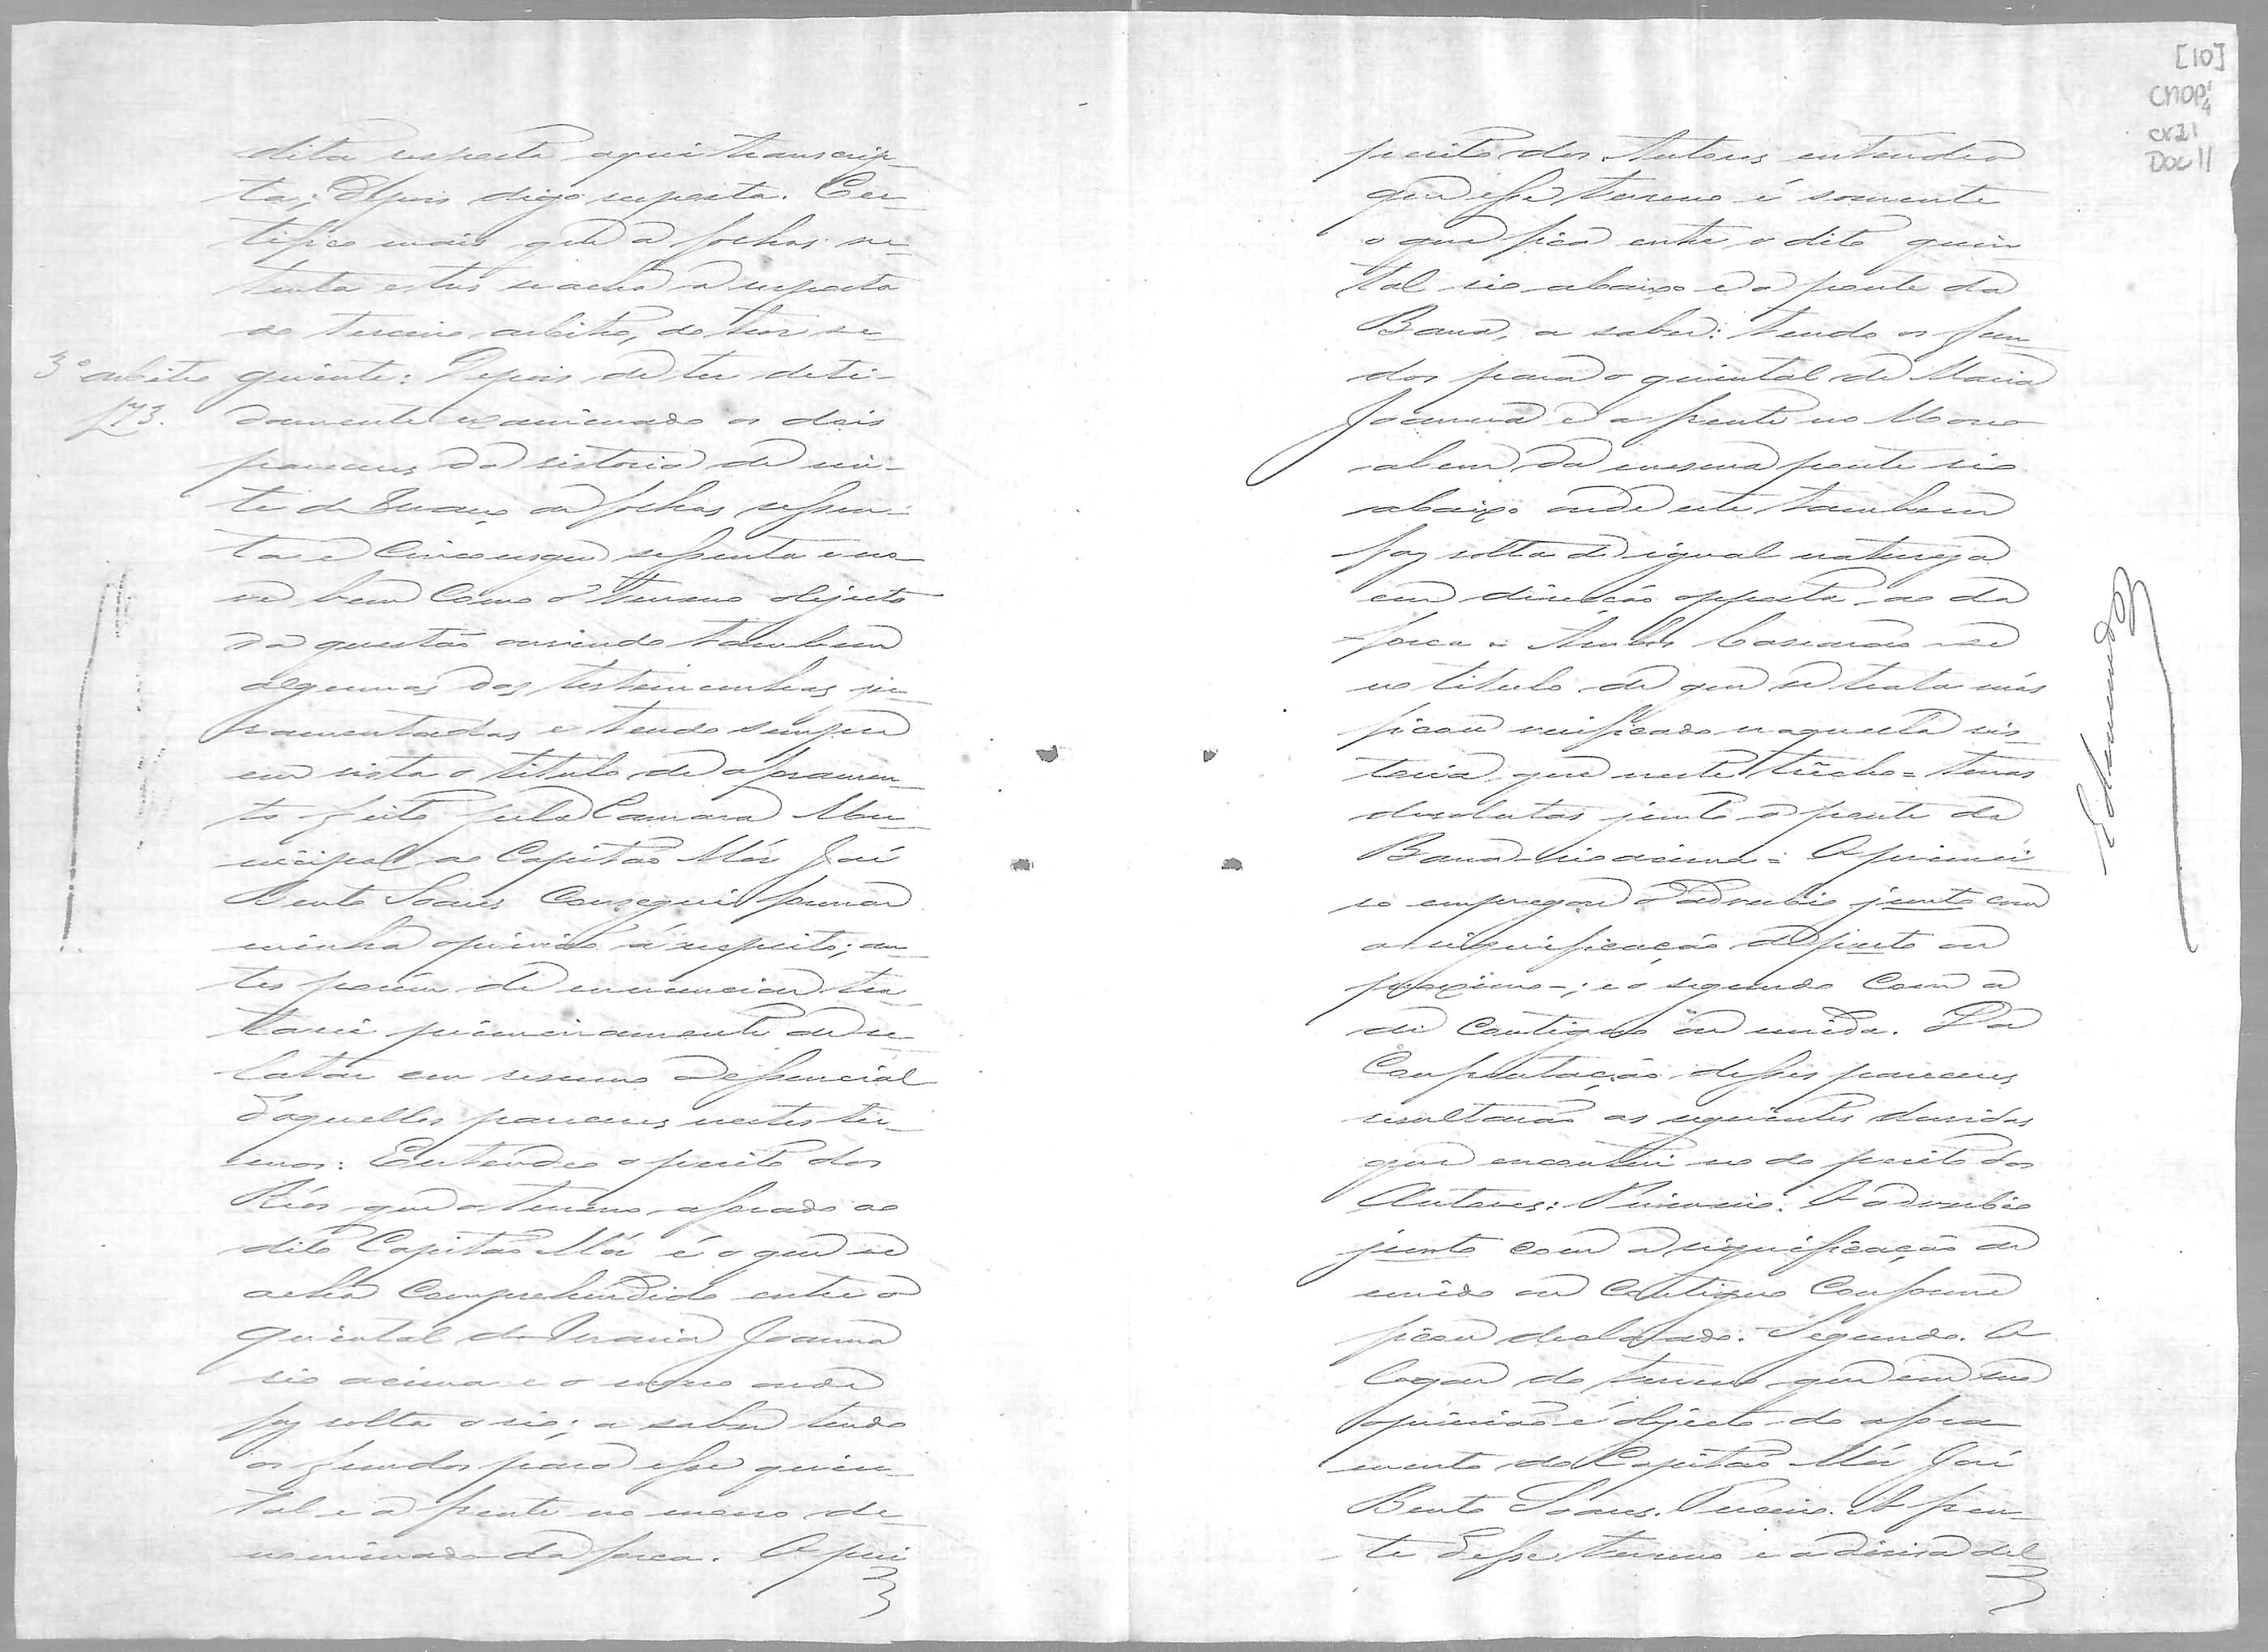 dita resposta aqui transcrip-
ta; Depois digo resposta. Cer-
tifico mais que a folhas se-
tenta e tres se acha a resposta
do terceiro arbitro, do theor se-
3º arbitro
f 73.
guinte: Depois de ter deti-
damente examinado os dois
pareceres da vistoria de vin-
te de Março a folhas sessen-
ta e Cinco usque sessenta e no-
ve bem Como o terreno objecto
da questão ouvindo tambem
algumas das testemunhas ju-
ramentadas e tendo sempre
em vista o titulo de aforamen-
to feito pela Camara Mu-
nicipal ao Capitão Mór José
Bento Soares Consegui formar
minha opinião á respeito; an-
tes porém de enunciar tra-
tarei primeiramente de re-
latar em resumo o essencial
d'aquelles pareceres nestes ter-
mos: Entendeo o perito dos
Réos que o terreno aforado ao
dito Capitão Mór é o que se
acha Comprehendido entre o
quintal de Maria Joanna
rio acima e o morro onde
faz volta o rio; a saber tendo
os fundos para esse quin-
tal e a frente no morro de-
nominado da forca. O pe
[10]
CMOP
cx21
DOC 11
perito dos Autores entendeo
que esse terreno é somente
o que fica entre o dito quin-
tal rio abaixo e a ponte da
Barra, a saber: tendo os fun-
dos para o quintal de Maria
Joanna e a frente no Morro
alem da mesma ponte rio
abaixo onde este tambem
faz volta de igual natureza
em direcção opposta ao da
forca = Ambos basearão-se
no titulo de que se trata mas
ficou verificado naquella vis-
toria que neste trêcho = terras
devolutas junto a ponte da
Barra rio acima = O primei-
ro empregou o adverbio junto com
a significação de perto ou
proximo -; e o segundo Com a
de Contiguo ou unida. Da
Confrontação desses pareceres
resultarão as seguintes duvidas
que encontrei no do perito dos
Autores: Primeiro. O adverbio
junto com a significação de
unido ou Contiguo Conforme
ficou declarado. Segundo. O
lugar do terreno que em sua
opinião é objecto do afora-
mento do Capitão Mór José
Bento Soares. Terceiro. A fren-
te desse terreno e a divisa del